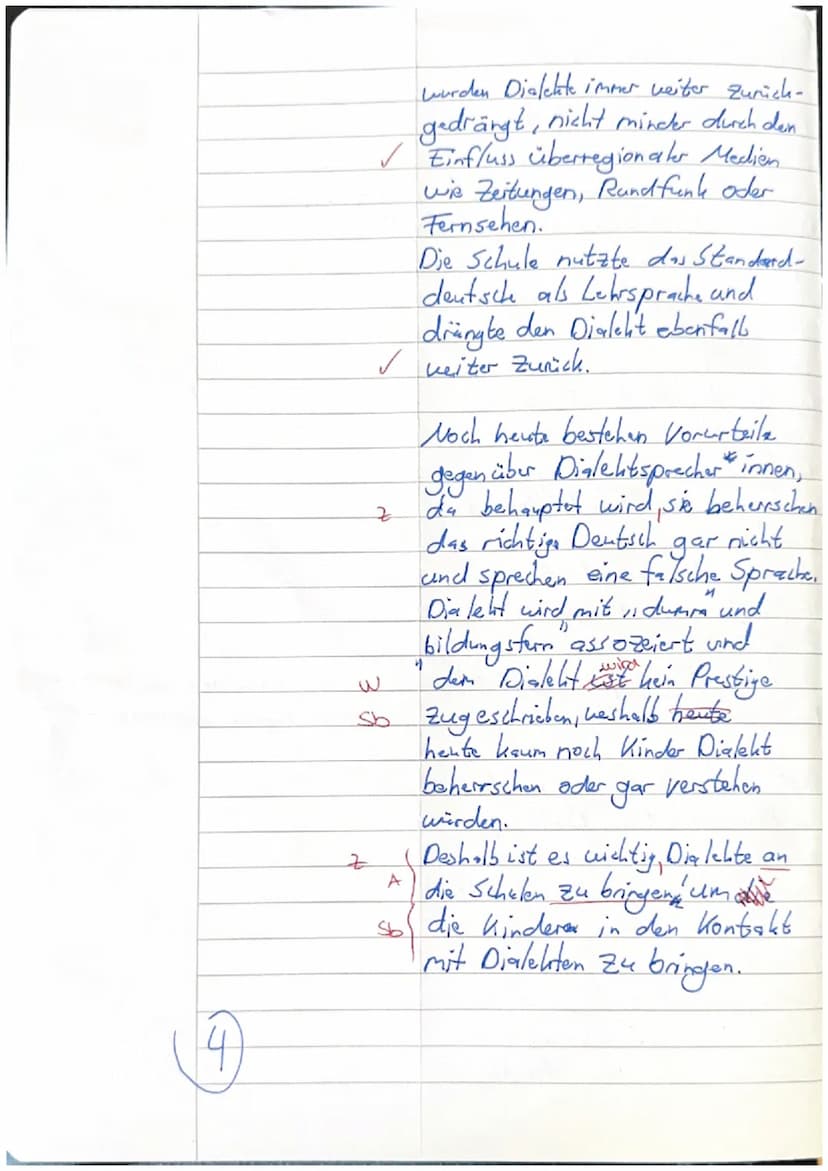 wurden Dialekte immer weiter zurück-
gedrängt, nicht minder durch den
✓ Einfluss überregionaler Medien
wie Zeitungen, Rundfunk oder
Fernsehen.
Die Schule nutzte das Standard-
deutsch als Lehrsprache und
drängte den Dialekt ebenfall
✓ weiter zurück.
Noch heute bestehen Vorurteile
gegenüber Dialektsprecher*innen,
Z da behauptet wird, sie beherrschen
das richtige Deutsch gar nicht
und sprechen eine falsche Sprache.
Dialekt wird mit "dumm" und
bildungsfern" assozeiert und
wird
W " dem Dialekt ist kein Prestige
Sb zugeschrieben, weshalb heute
heute kaum noch Kinder Dialekt
beherrschen oder gar verstehen
würden.
Z Deshalb ist es wichtig, Dialekte an
A die Schulen zu bringen, um
Sb die Kinder in den Kontakt
mit Dialekten zu bringen.
4